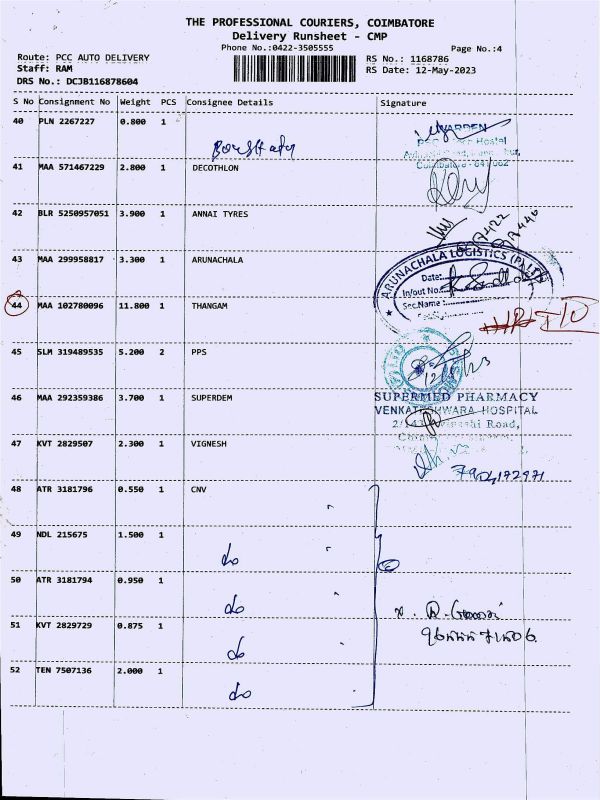 THE PROFESSIONAL COURIERS, COIMBATORE
Delivery Runsheet - CMP
Phone No.:0422-3505555
Page No.:4
Route: PCC AUTO DELIVERY
RS No.: 1168786
Staff: RAM
RS Date: 12-May-2023
DRS No.: DCJB116878604
S No Consignment No Weight PCS Consignee Details Signature
40 PLN 2267227 0.800 1
WARDEN
Hostel
41 MAA 571467229 2.800 1 DECOTHLON
42 BLR 5250957051 3.900 1 ANNAI TYRES
43 MAA 299958817 3.300 1 ARUNACHALA
ARUNACHALA LOGISTICS (P) LTD
Date:
In/out No.:
Sec.Name :
44 MAA 102780096 11.800 1 THANGAM
45 SLM 319489535 5.200 2 PPS
46 MAA 292359386 3.700 1 SUPERDEM
SUPERMED PHARMACY
VENKATESHWARA HOSPITAL
Road,
47 KVT 2829507 2.300 1 VIGNESH
48 ATR 3181796 0.550 1 CNV
49 NDL 215675 1.500 1 do
50 ATR 3181794 0.950 1 do
51 KVT 2829729 0.875 1 do
52 TEN 7507136 2.000 1 do